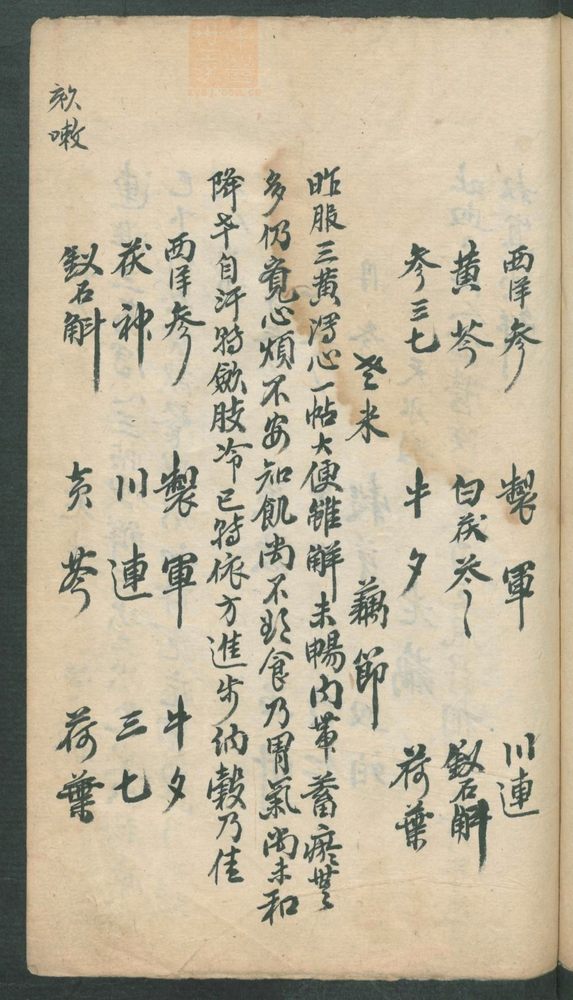 西洋參 製軍 川連
黃芩 白茯苓 釵石斛
參三七 牛夕 荷葉
米 藕節
昨服三黃瀉心一帖大便雖解未暢內蓄瘀無
多仍覺心煩不安知飢尚不食乃胃氣尚未和
降幸自汗轉歛肢冷已轉依方進步納穀乃佳
西洋參 製軍 牛夕
茯神 川連 三七
釵石斛 黃芩 荷葉
欬嗽